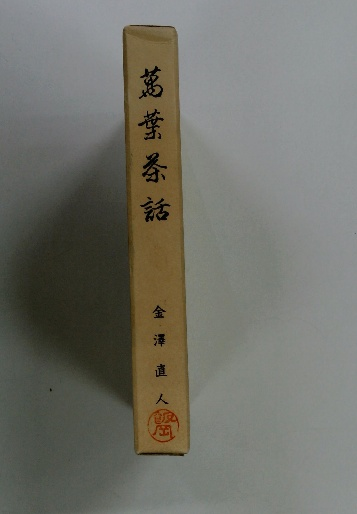 萬葉茶話
金澤直人